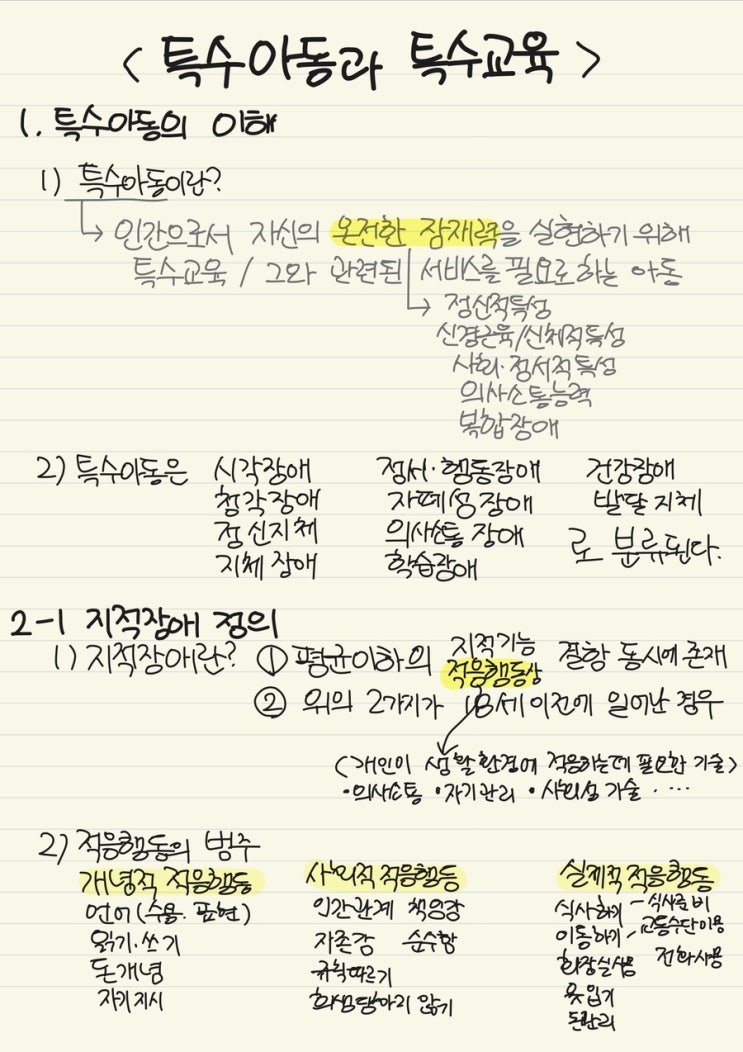 < 특수아동과 특수교육 >
1. 특수아동의 이해
1) 특수아동이란?
→ 인간으로서 자신의 온전한 잠재력을 실현하기 위해
특수교육 / 그와 관련된 서비스를 필요로하는 아동
→ 정신적특성
신경근육/신체적특성
사회·정서적특성
의사소통능력
복합장애
2) 특수아동은 시각장애 정서·행동장애 건강장애
청각장애 자폐성장애 발달지체
정신지체 의사소통 장애 로 분류된다.
지체장애 학습장애
2-1 지적장애 정의
1) 지적장애란? ① 평균이하의 지적기능 적응행동상 결함 동시에 존재
② 위의 2가지가 18세이전에 일어난 경우
<개인이 생활환경에 적응하는데 필요한 기술>
·의사소통 ·자기관리 ·사회성 기술 · ···
2) 적응행동의 범주
개념적 적응행동 사회적 적응행동 실제적 적응행동
언어(수용·표현) 인간관계 책임감 식사하기 - 식사준비
읽기·쓰기 자존감 순수함 이동하기 - 교통수단이용
돈개념 규칙따르기 화장실사용 전화사용
자기지시 희생당하지 않기 옷입기
돈관리